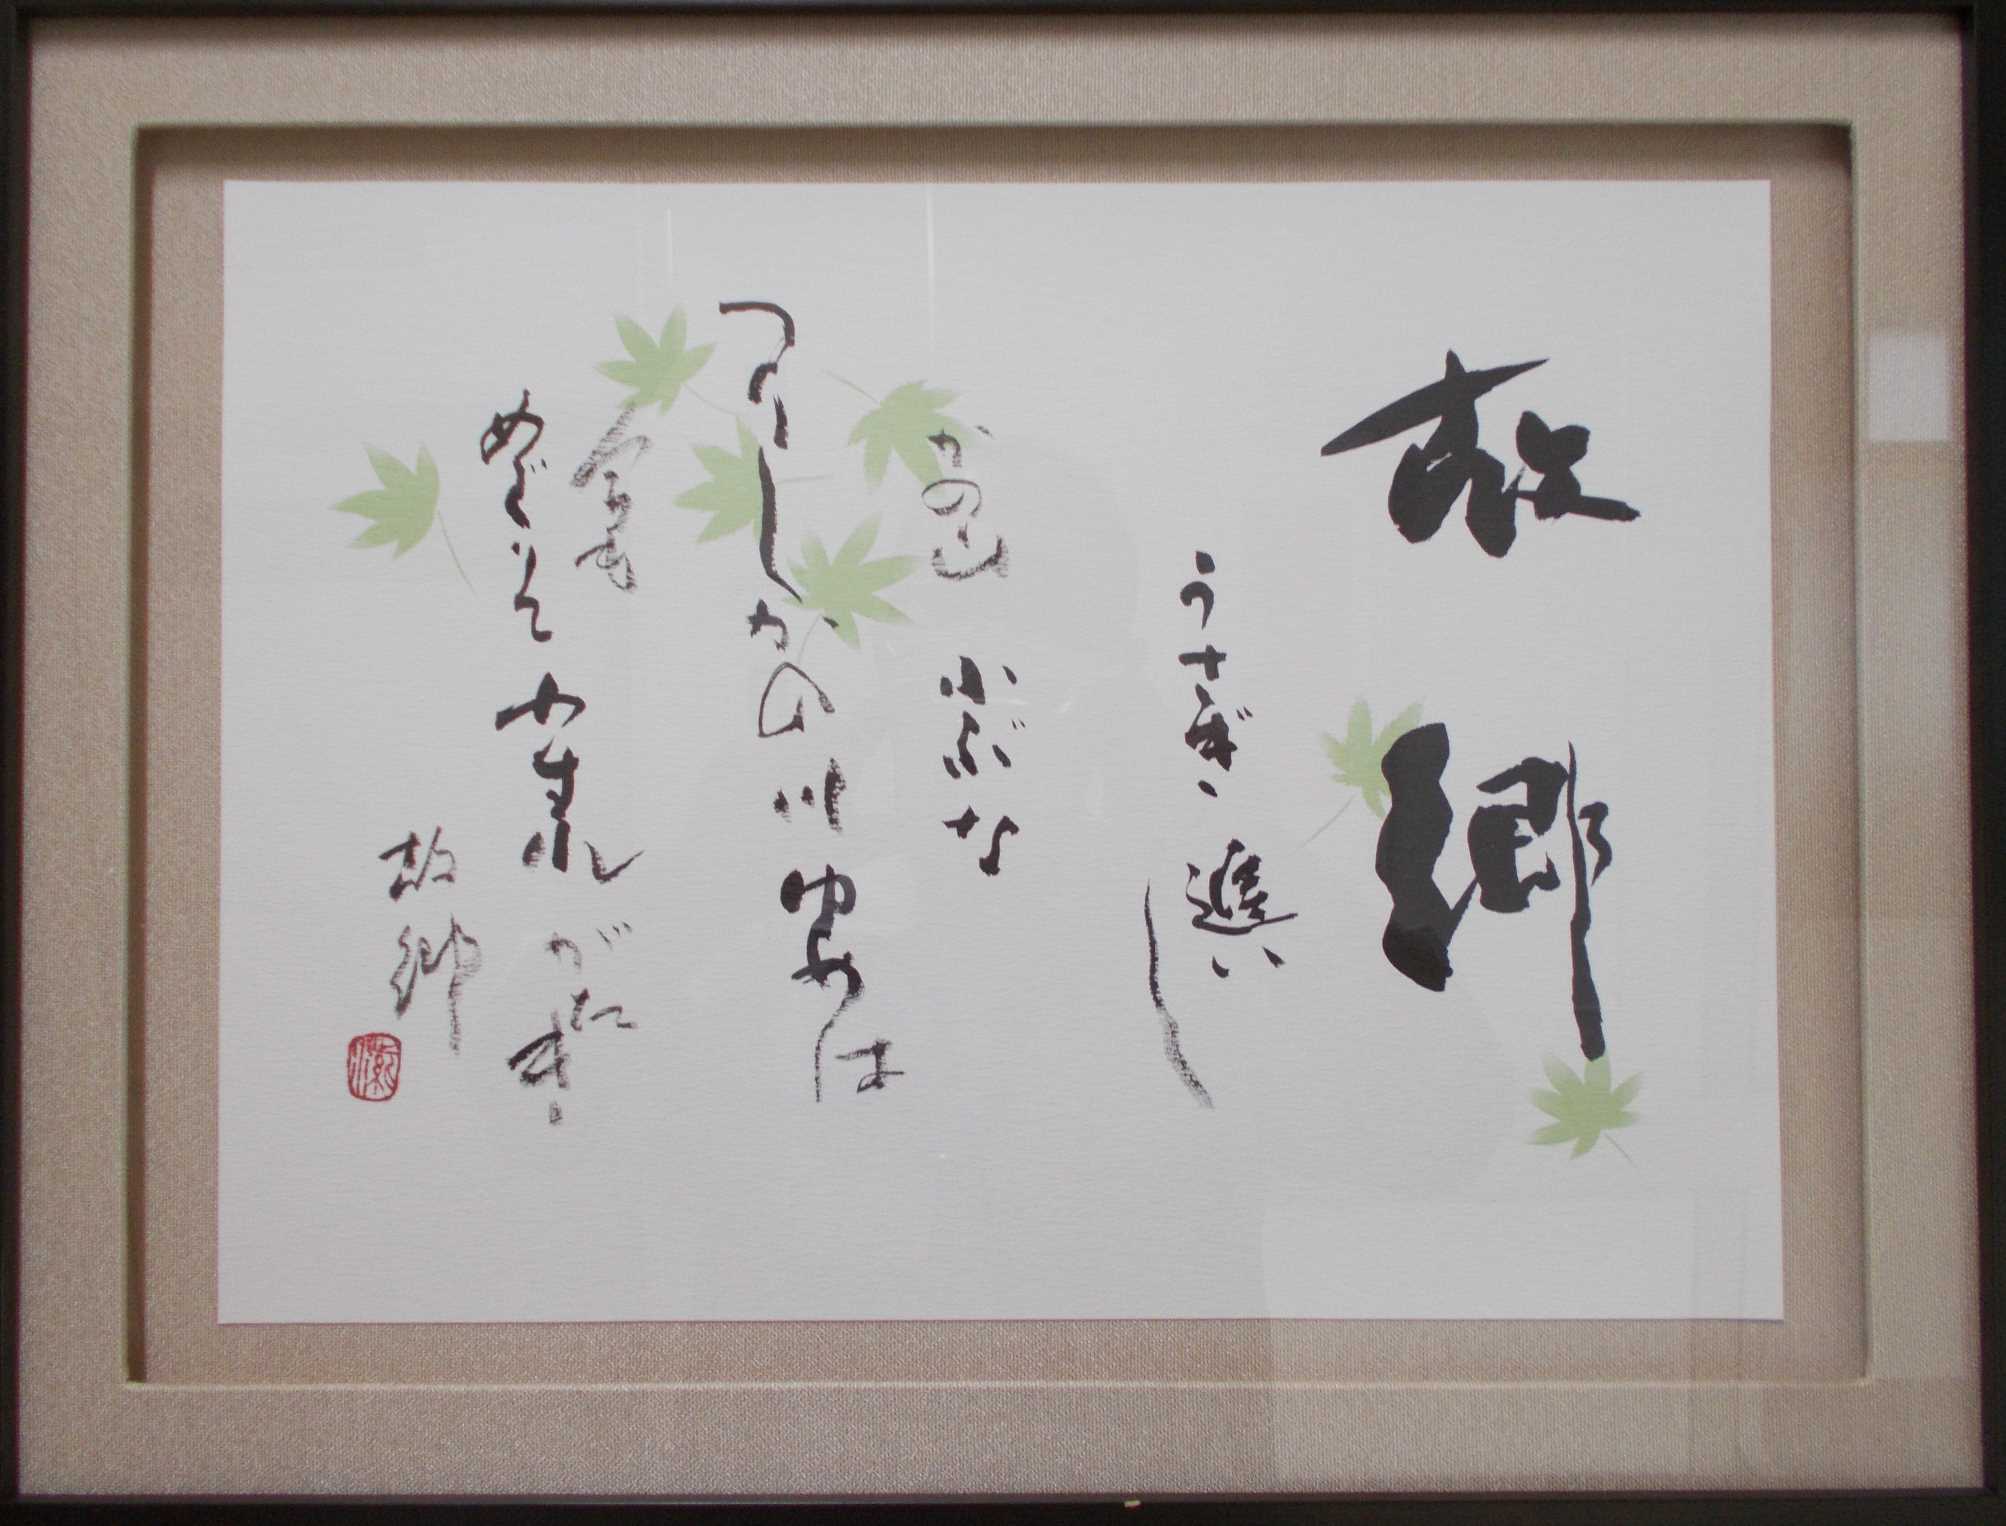 故郷
うさぎ追いし
かの山 小ぶな
つりしかの川ゆめは
今も
めぐりてわすれがたき
故郷